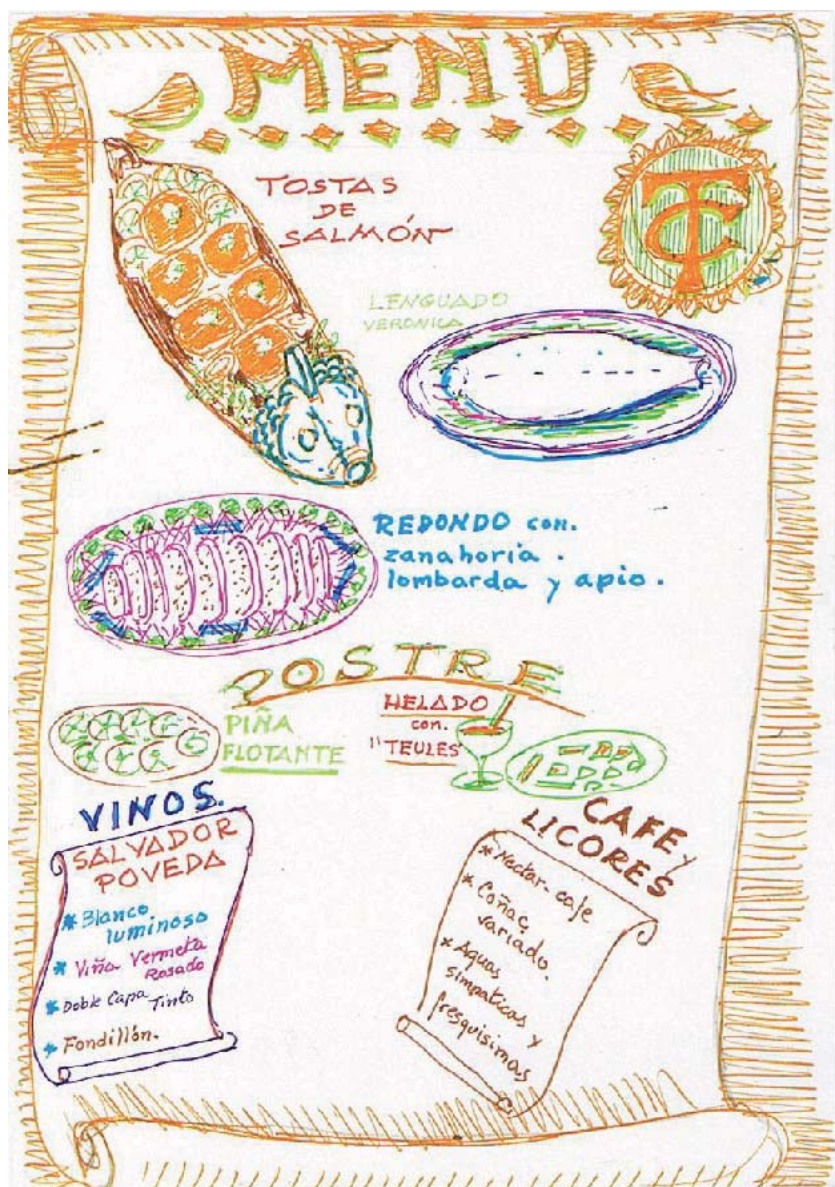 MENÚ
TC
TOSTAS
DE
SALMÓN
LENGUADO
VERONICA
REDONDO con.
zanahoria.
lombarda y apio.
POSTRE
PIÑA
FLOTANTE
HELADO
con.
"TEULES
VINOS.
SALVADOR
POVEDA
* Blanco
luminoso
* Viña Vermeta
Rosado
* Doble Capa Tinto
* Fondillón.
CAFE y
LICORES
* Nectar-cafe
* Coñac
variado.
* Aguas
simpaticas y
fresquisimas